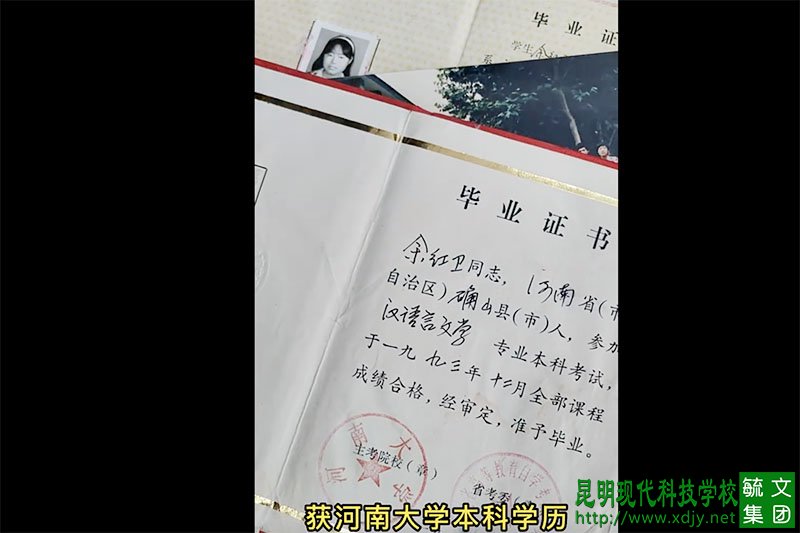 毕业证
学生余红
系
毕业证书
余红卫同志，河南省(市
自治区)确山县(市)人，参加
汉语言文学 专业本科考试，
于一九九三年十二月全部课程
成绩合格，经审定，准予毕业。
河南大学
主考院校(章)
等教育自学考
省考委
获河南大学本科学历
昆明现代科技学校
http://www.xdjy.net
毓文
集团